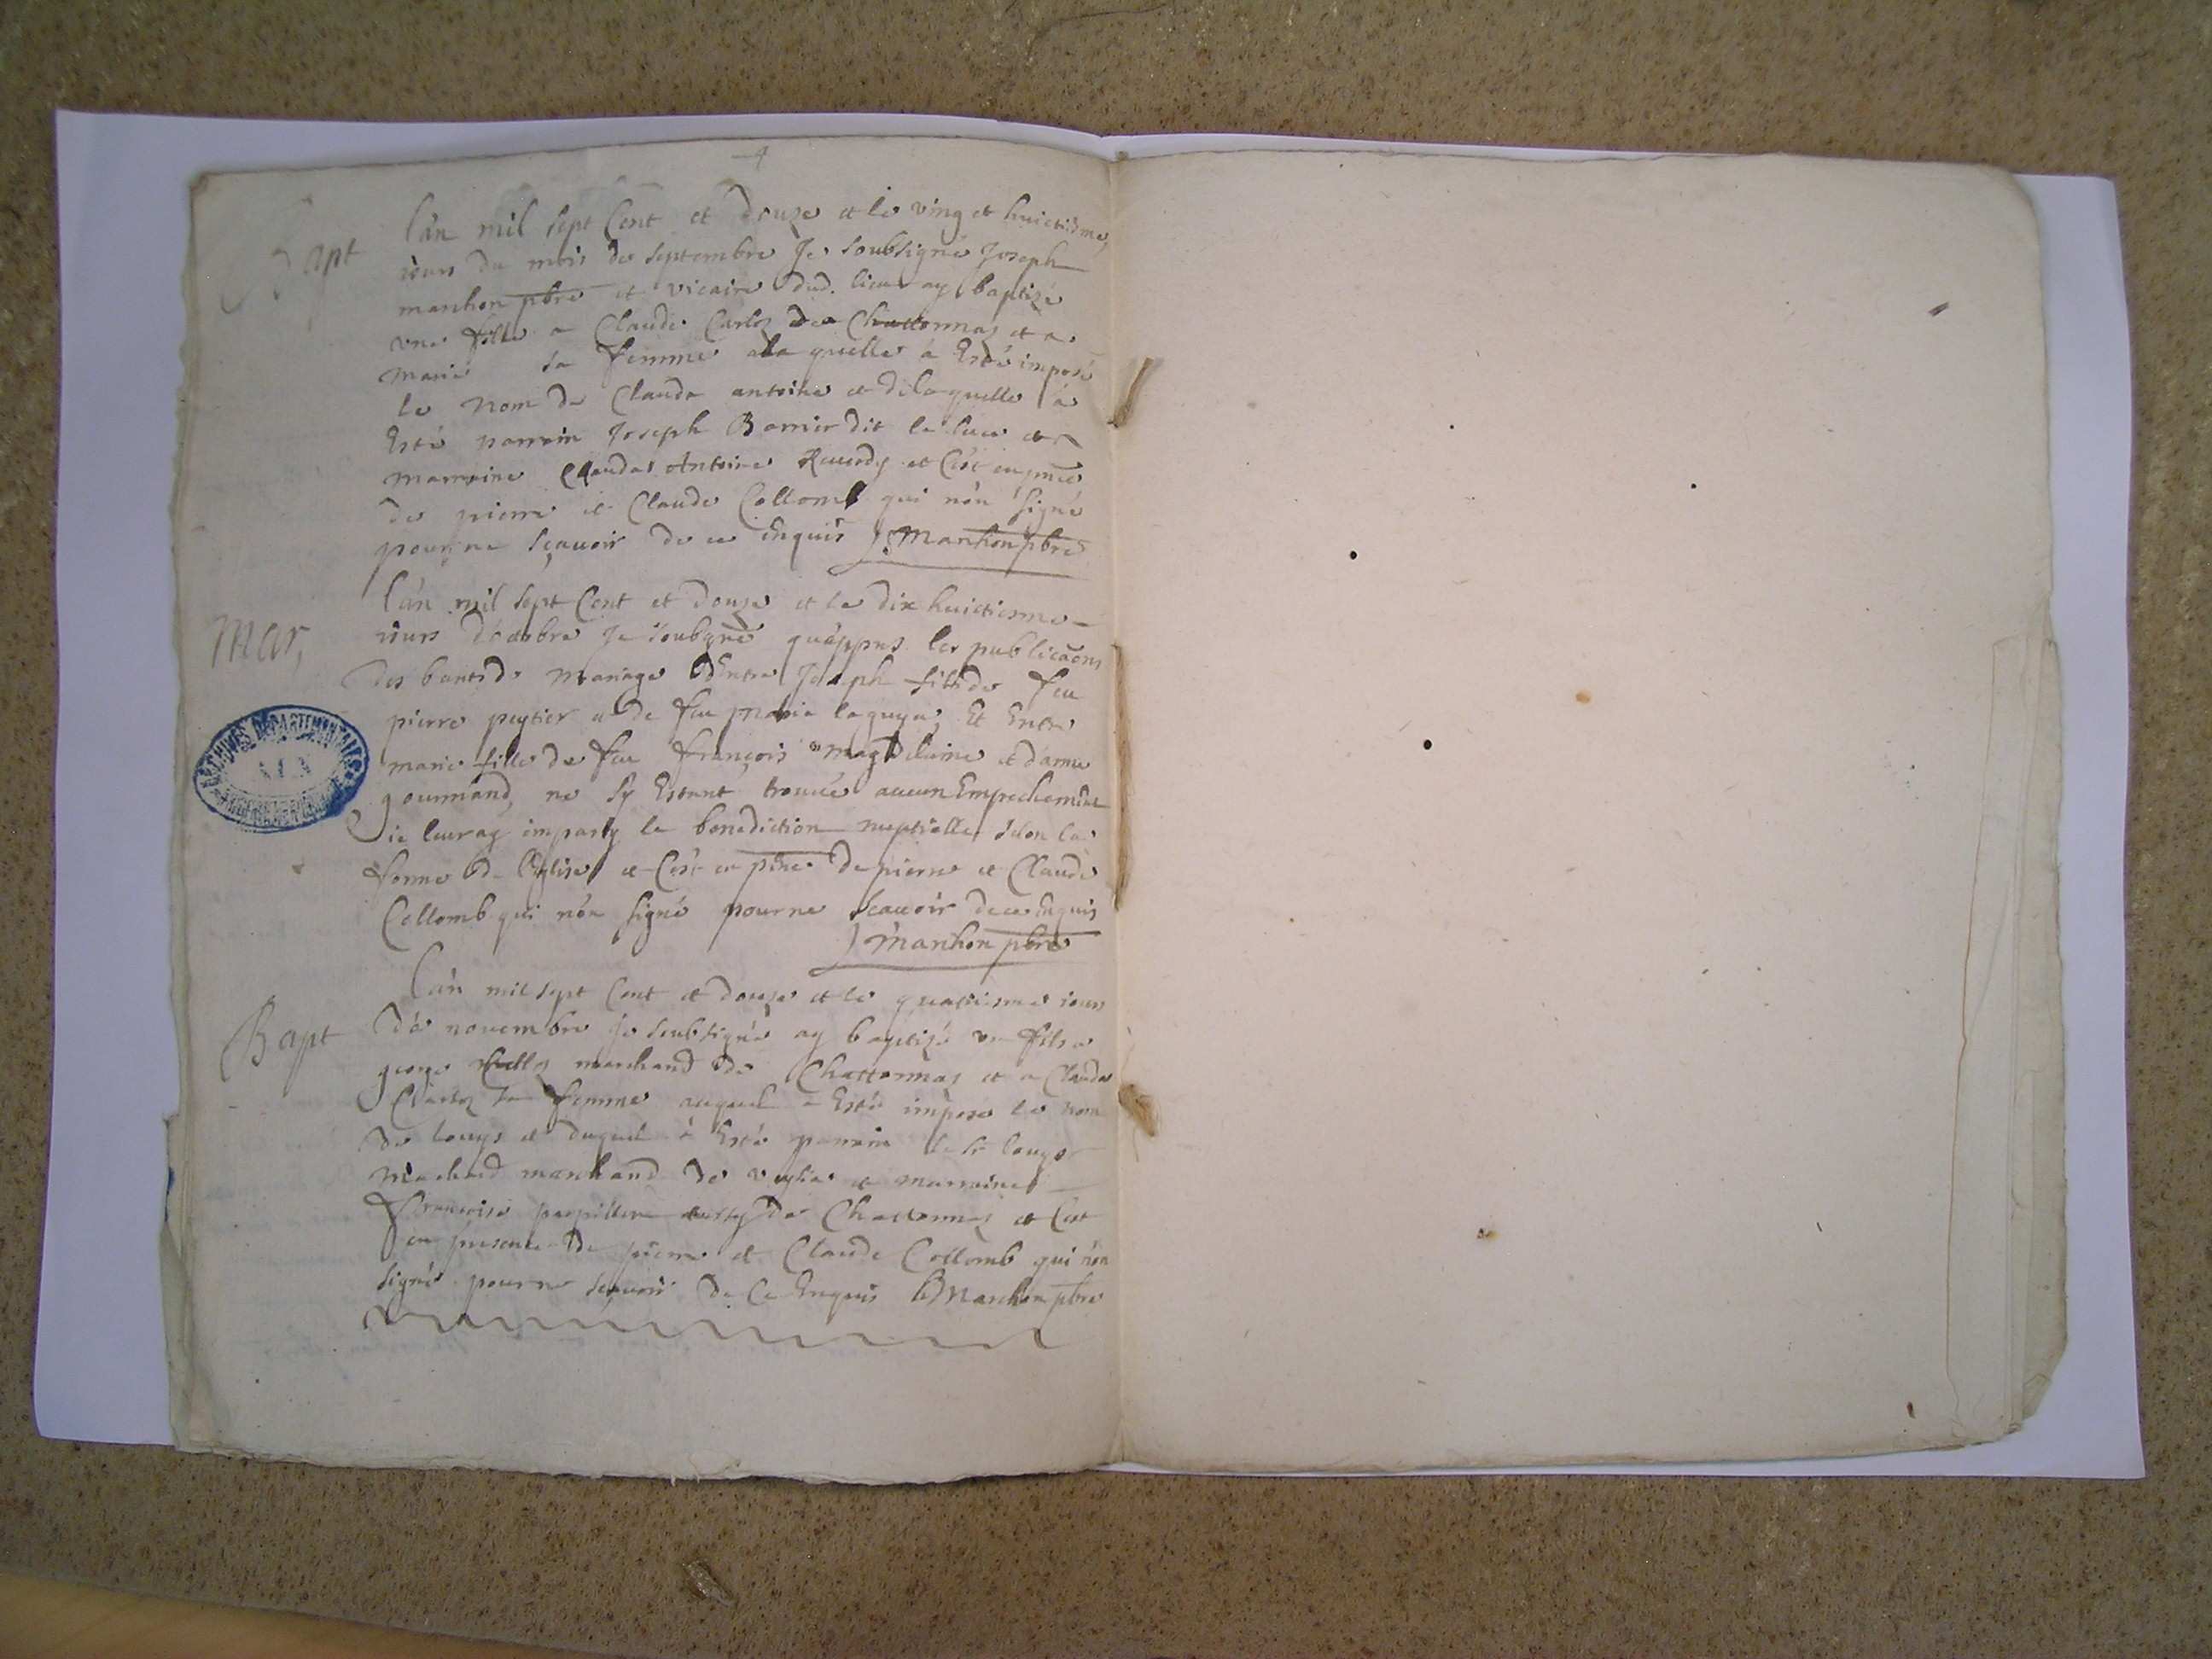 4
Bapt
L'an mil sept Cent et douze et le ving et huictisme
iours du mois de septembre Je soubsigné Joseph
marchon pbre et vicaire dud. lieu ay baptizé
une fille a Claude Carloz de Chattonnay et a
marie sa femme a la quelle a Esté imposé
le nom de Claude antoine et de laquelle a
Esté parrain Joseph Barrier dit le et
marraine Claudas Antoine et C'est en pnce
de pierre et Claude Collomb qui n'on signé
pour ne sçauoir de ce enquis J Marchon pbre
Mar,
L'an mil sept Cent et douze et le dix huictiesme
iours d'octobre Je soubsigné qu'appres les publicaõns
des bants de mariage D'Entre Joseph fils de feu
pierre peytier et de feu Maria Et Entre
marie fille de feu françois magdelaine et d'anne
gourmand, ne sy Estant trouué aucun Empechement
ie leur ay imparty la benediction nuptialle selon la
forme de l'Eglise et C'est en pnce de pierre et Claude
Collomb qui n'on signé pour ne scauoir de ce enquis
J Marchon pbre
Bapt
L'an mil sept Cent et douze et le quatriesme iours
de novembre je soubsigné ay baptizé un fils a
george marchand de Chattonnay et a Claudas
Carloz sa femme auquel a Esté imposé le nom
de louys et duquel a Esté parrain le sr louys
marchand de et marraine
Françoise de Chattonnay et C'est
en presence de pierre et Claude Collomb qui n'on
signé pour ne sçauoir de Ce Enquis J Marchon pbre
ARCHIVES DÉPARTEMENTALES